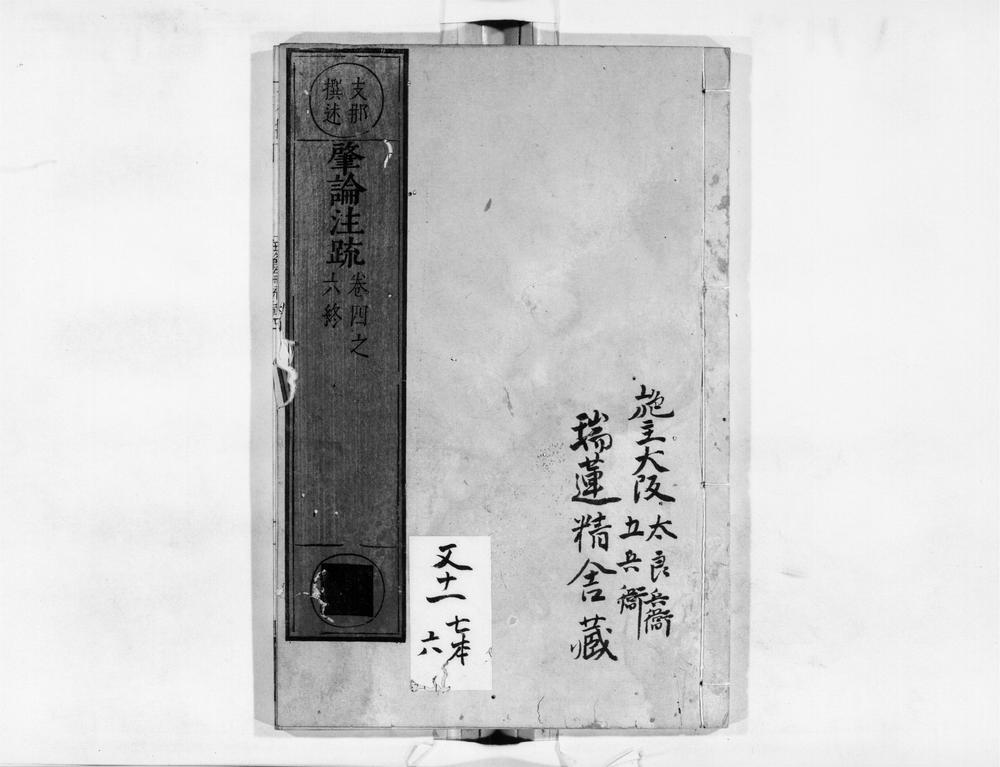 施主大阪
太良兵衞
五兵衞
瑞蓮精舍藏
支那
撰述
肇論注疏
卷四之
六終
又十一
七本
六